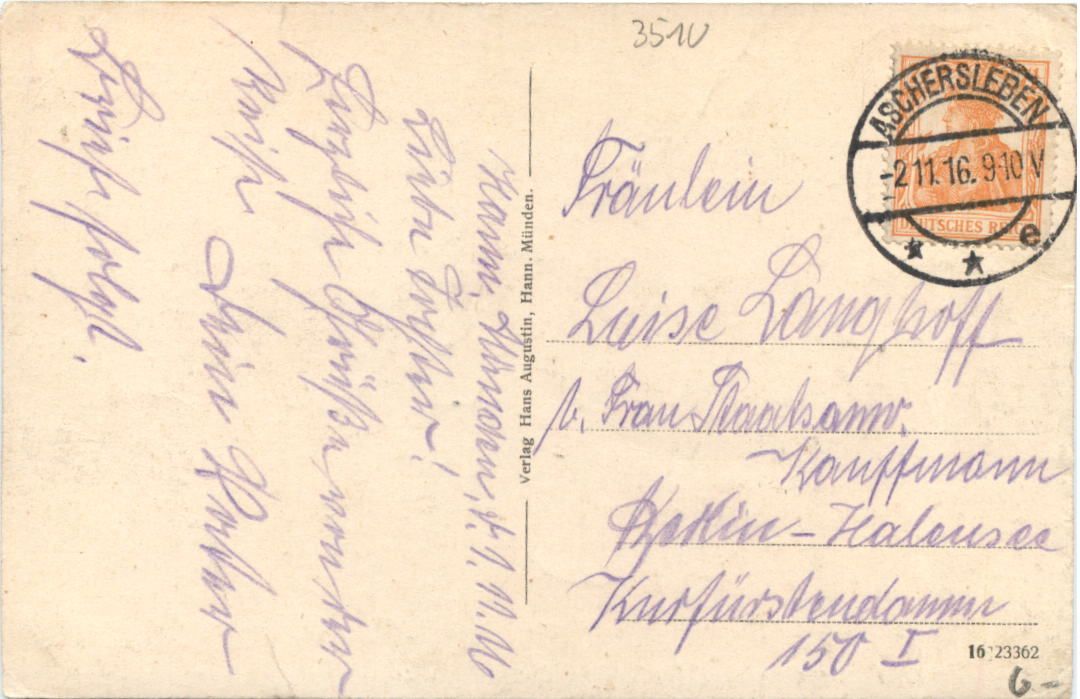 3510
ASCHERSLEBEN
-2.11.16. 9-10 V
* * e
DEUTSCHES REICH
Hann. Münden, d. 1.11.16
Herzliche Grüße von der
Reise
Dein
Brief folgt.
Verlag Hans Augustin, Hann. Münden.
Fräulein
Luise Langhoff
b. Frau Staatsanw.
Kauffmann
Berlin-Halensee
Kurfürstendamm
150 I
16 23362
6-